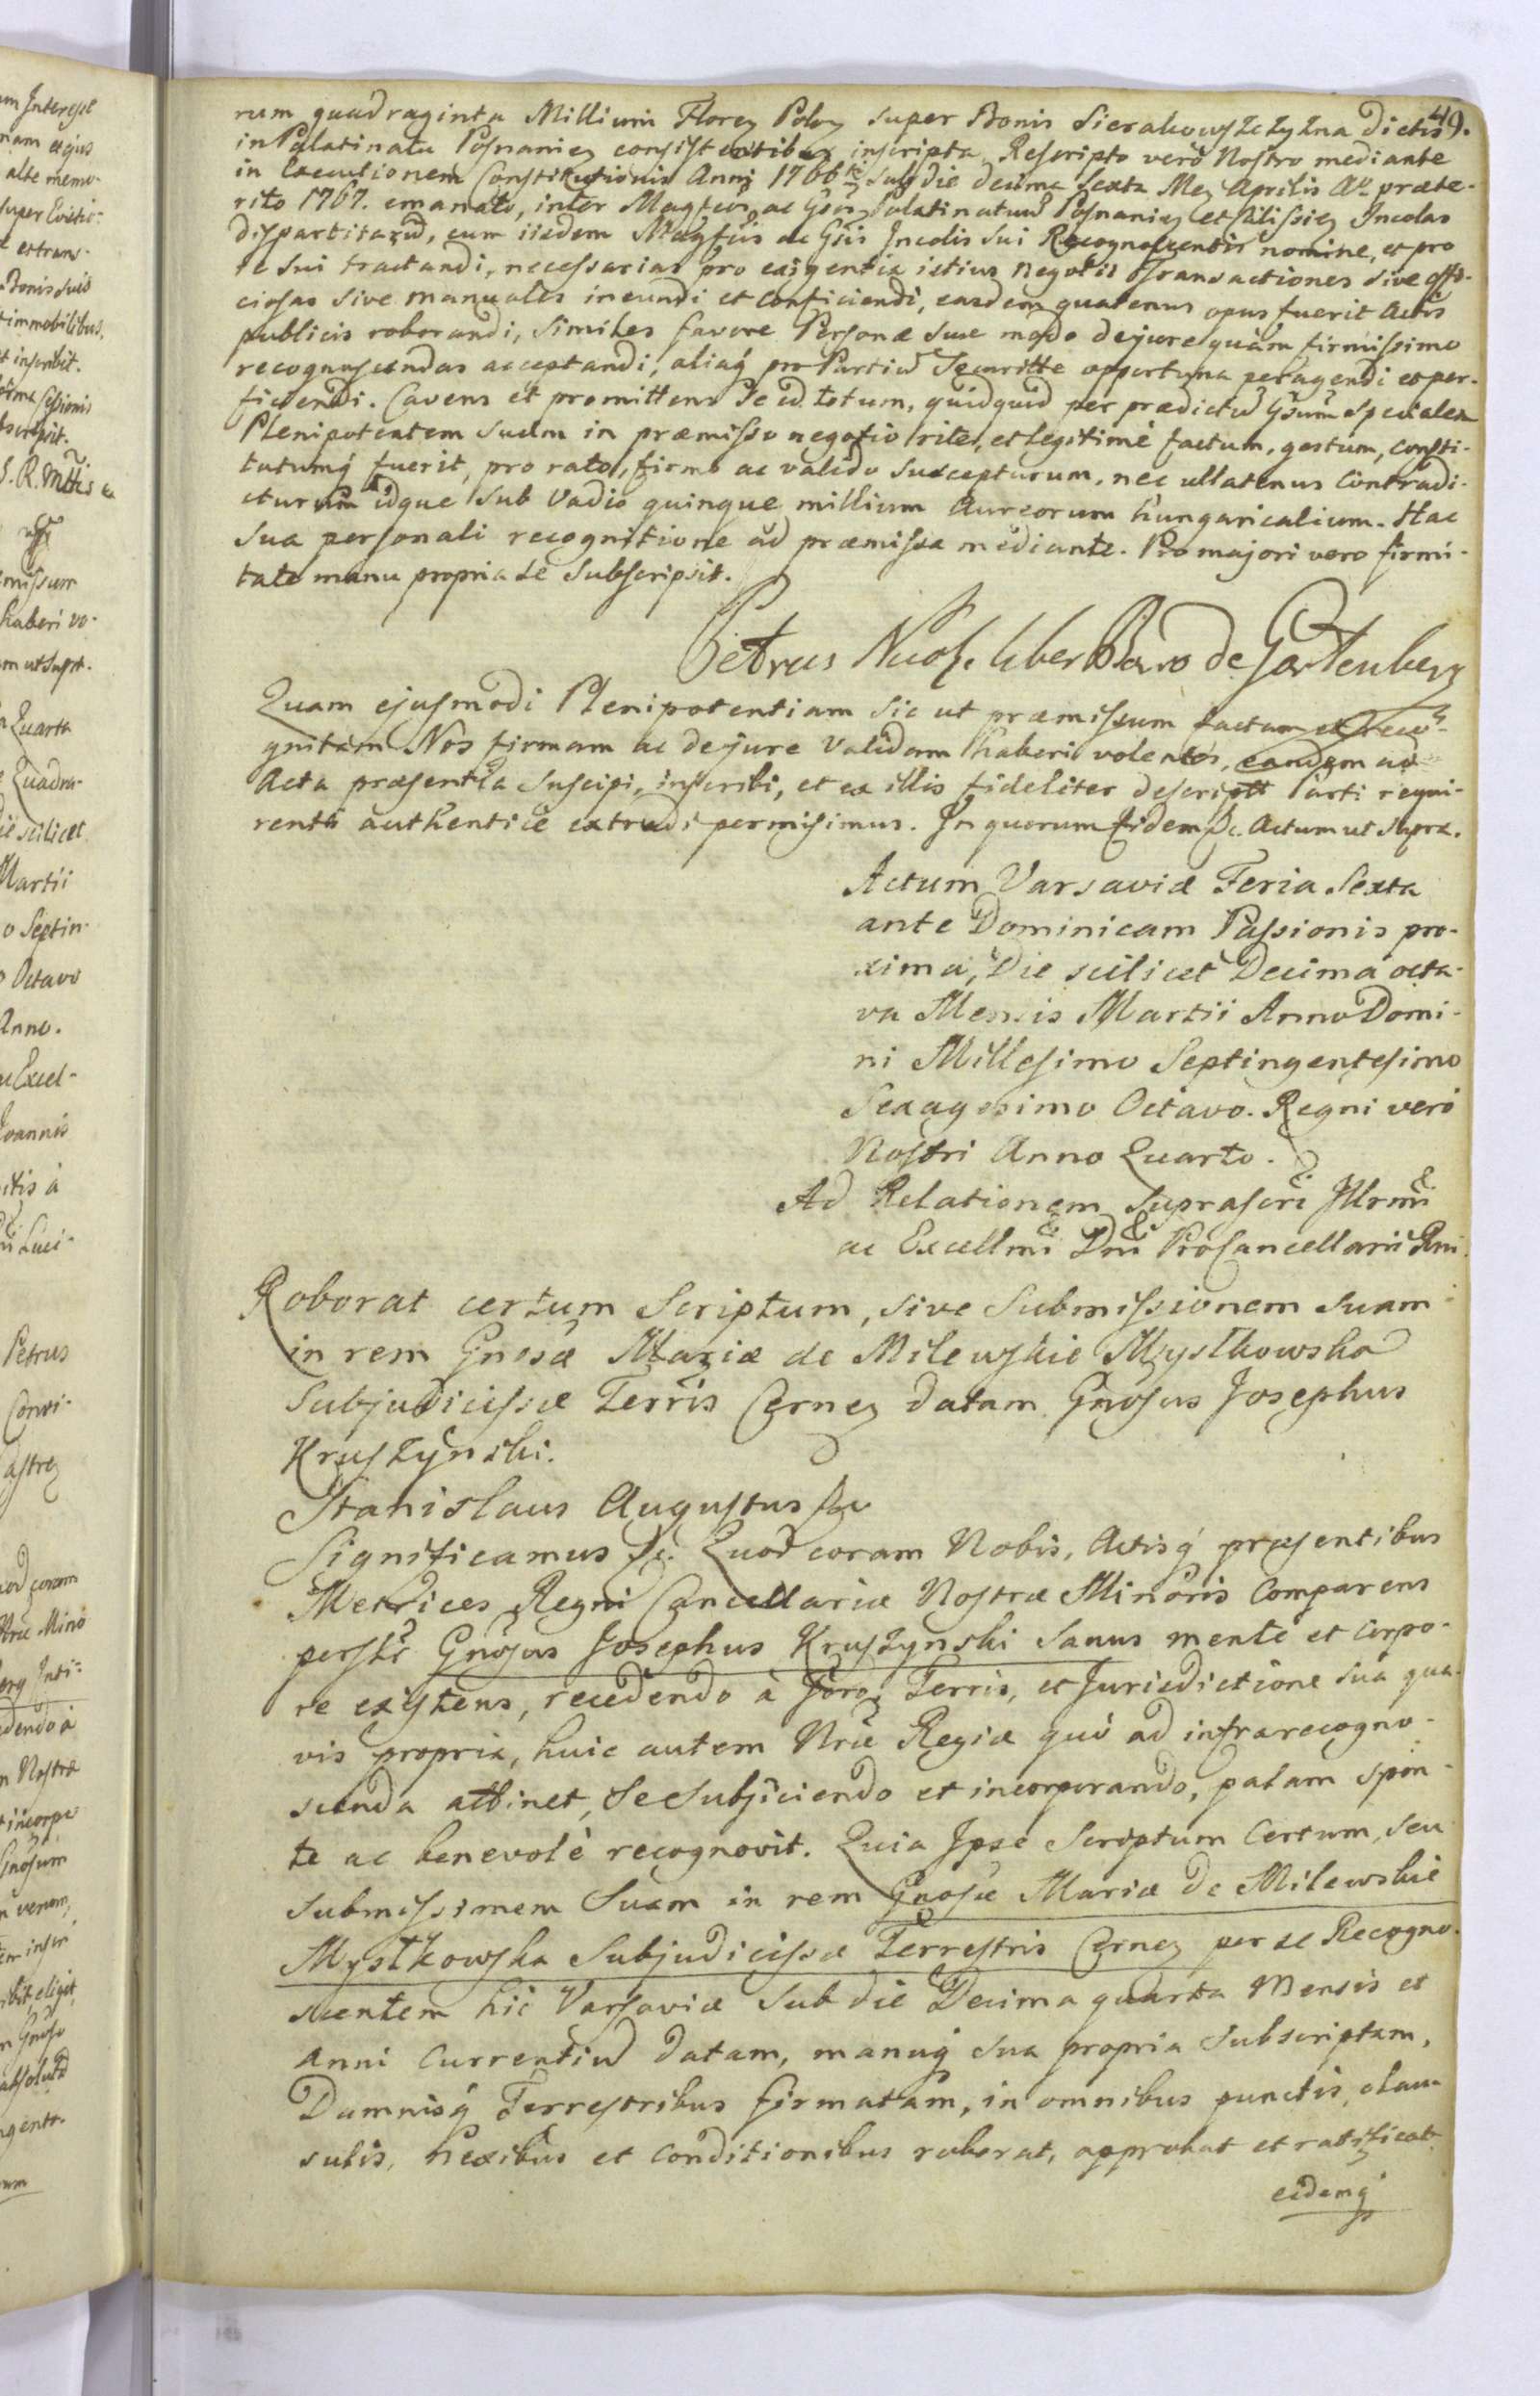 49.
rum quadraginta Millium Floreӡ Polӡ super Bonis Sierakowszczyzna dictis
in Palatinatu Posnanieӡ consistentibus inscripta, Rescripto verò Nostro mediante
in Executionem Constitutionis Anni 1766 sub die decima sexta Meӡ Aprilis Aº præte-
rito 1767. emanato, inter Magfcos ac Gsos Palatinatuū Posnanieӡ et Calissieӡ Incolas
dispartitarū, cum iisdem Magfcis ac Gsis Incolis sui Recognoscentis nomine, et pro
se sui tractandi, necessarias pro exigentia istius negotii Transactiones sive offi-
ciosas sive manuales ineundi et conficiendi, easdem quatenus opus fuerit Actis
publicis roborandi, similes favore Personæ suæ modo dejure quàm firmissimo
recognoscendas acceptandi, aliaq́ pro Partiū Securitte opportuna peragendi et per-
ficiendi. Cavens et promittens se id totum, quidquid per prædictū Gsum Specialem
Plenipotentem suum in præmisso negotio rite, et legitimè factum, gestum, consti-
tutumq́ fuerit, pro rato, firmo ac valido suscepturum, nec ullatenus Contradi-
cturum idque sub Vadio quinque millium Aureorum hungaricalium. Hac
sua personali recognitione ad præmissa mediante. Pro majori vero firmi-
tate manu propria se subscripsit.
Petrus Nicol. liber Baro de Gartenberg
Quam ejusmodi Plenipotentiam sic ut præmissum factam et reco-
gnitam Nos firmam ac dejure Validam haberi volentes, eandem ad
Acta præsentia suscipi, inscribi, et ex illis fideliter descriptt Parti requi-
renti authenticè extradi permisimus. In quorum fidem &c. Actum ut supra.
Actum Varsaviæ Feria Sexta
ante Dominicam Passionis pro-
xima, Die scilicet Decima octa-
va Mensis Martii Anno Domi-
ni Millesimo Septingentesimo
Sexagesimo Octavo. Regni verò
Nostri Anno Quarto.
Ad Relationem suprascri Illrmi
ac Excellmi Dni ProCancellarii Rni.
Roborat certum Scriptum, sive Submissionem suam
in rem Gnosæ Mariæ de Milewskie Mystkowska
Subjudicissæ Terris Cerneӡ datam Gnosus Josephus
Kruszynski.
Stanislaus Augustus &c
Significamus &c. Quod coram Nobis, Actisq́ præsentibus
Metrices Regni Cancellariæ Nostræ Minoris Comparens
persltr Gnosus Josephus Kruszynski sanus mente et corpo-
re existens, recedendo à Foro, Terris, et Jurisdictione sua qua-
vis propria, huic autem Nræ Regiæ quò ad infrarecogno-
scenda attinet, se subjiciendo et incorporando, palam spon-
te ac benevolè recognovit. Quia Ipse Scriptum Certum, seu
submissionem Suam in rem Gnosæ Mariæ de Milewskie
Mystkowska Subjudicissæ Terrestris Cerneӡ per se Recogno-
scentem hic Varsaviæ sub die Decima quarta Mensis et
Anni Currentiū datam, manuq́ sua propria subscriptam,
Damnisq́ Terrestribus firmatam, in omnibus punctis, clau-
sulis, nexibus et conditionibus roborat, approbat et ratificat
eidemq́